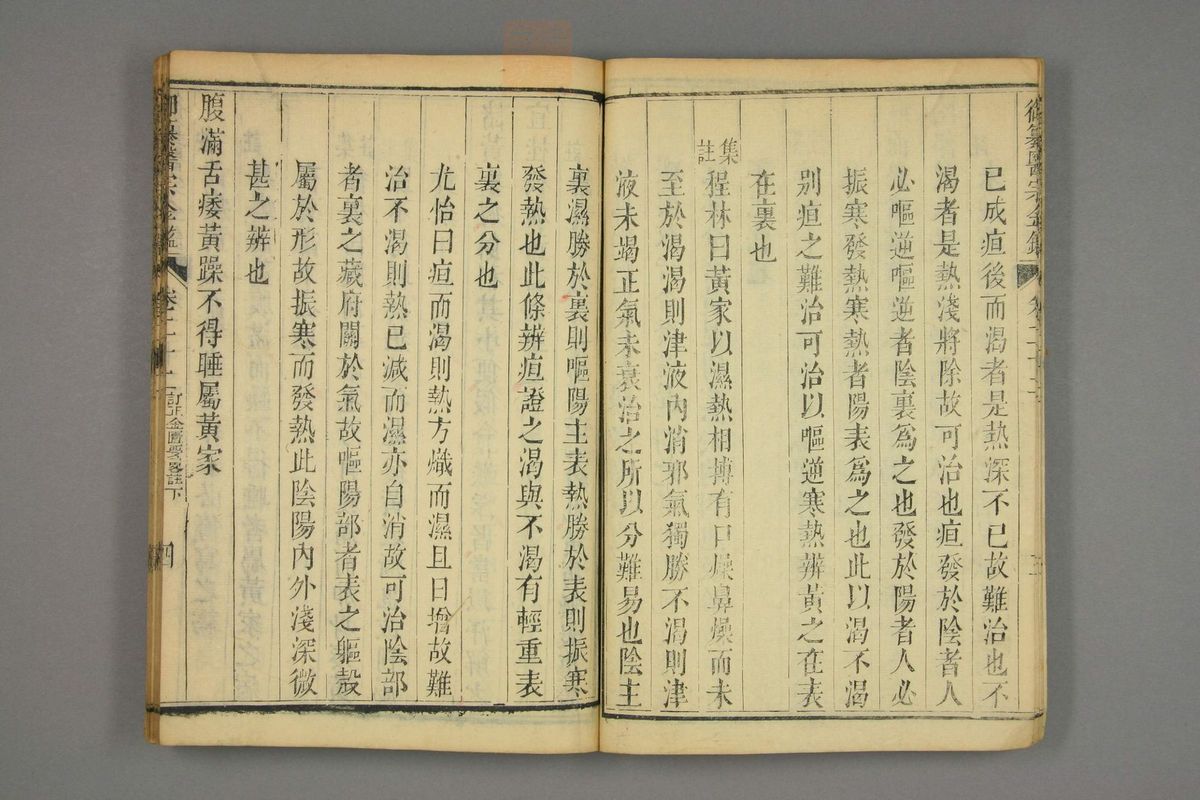 御纂醫宗金鑑
已成疸後而渴者是熱深不已故難治也不
渴者是熱淺將除故可治也疸發於陰者人
必嘔逆嘔逆者陰裏為之也發於陽者人必
振寒發熱寒熱者陽表為之也此以渴不渴
別疸之難治可治以嘔逆寒熱辨黃之在表
在裏也
集註
程林曰黃家以濕熱相摶有口燥鼻燥而未
至於渴渴則津液內消邪氣獨勝不渴則津
液未竭正氣未衰治之所以分難易也陰主
裏濕勝於裏則嘔陽主表熱勝於表則振寒
發熱也此條辨疸證之渴與不渴有輕重表
裏之分也
尤怡曰疸而渴則熱方熾而濕且日增故難
治不渴則熱已減而濕亦自消故可治陰部
者裏之藏府關於氣故嘔陽部者表之軀殼
屬於形故振寒而發熱此陰陽內外淺深微
甚之辨也
腹滿舌痿黃躁不得睡屬黃家
御纂醫宗金鑑
卷二十二
訂正金匱要畧註下
四